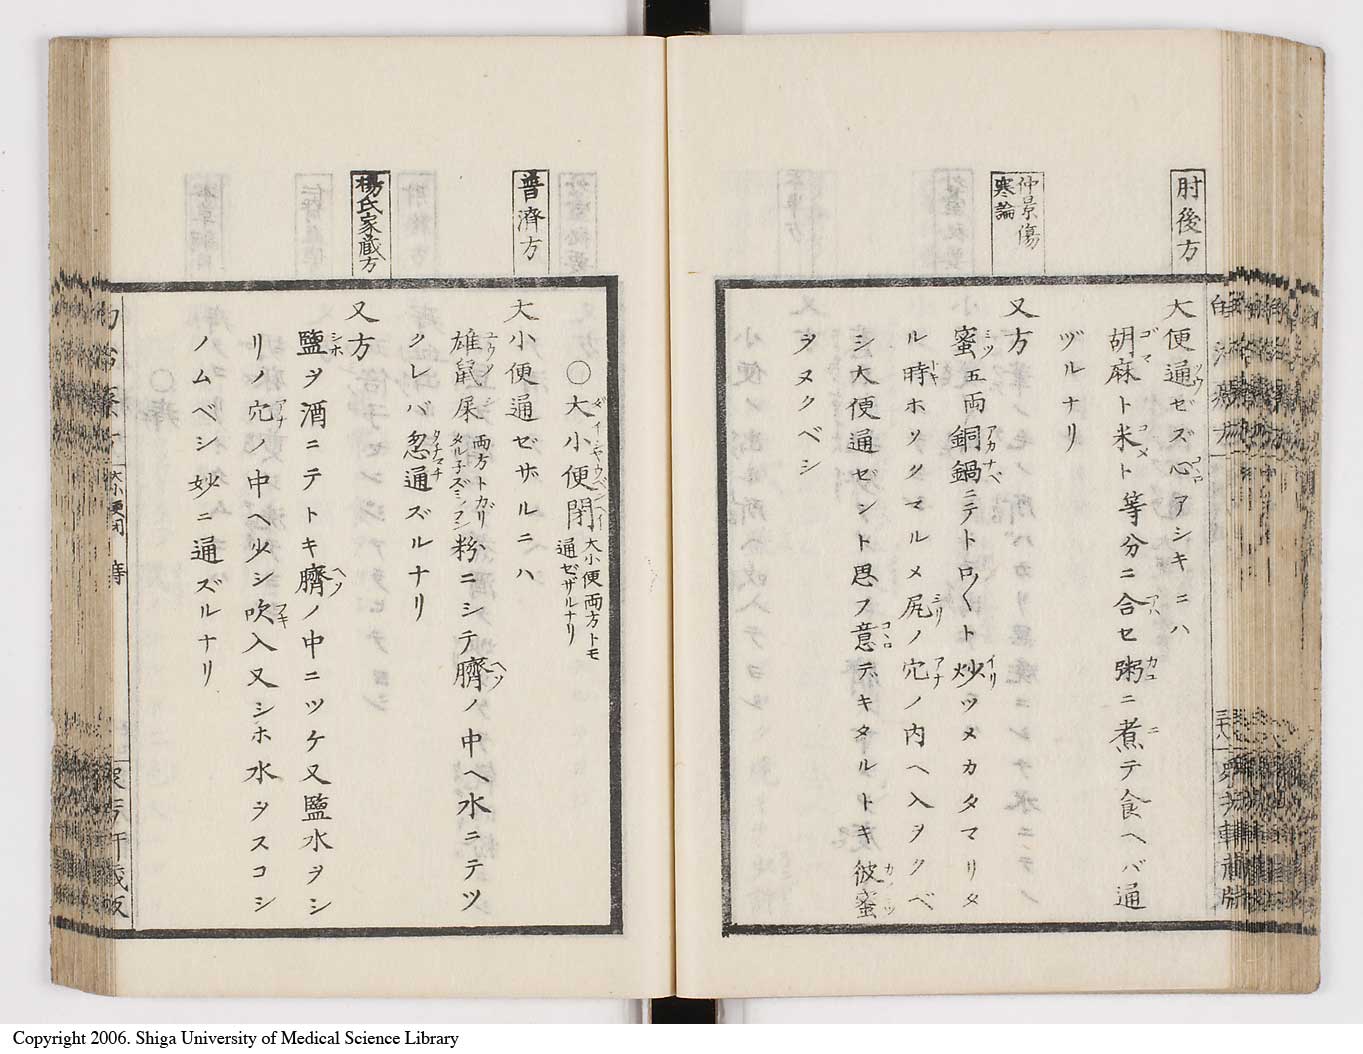 肘後方
大便通ゼズ心アシキニハ
胡麻ト米ト等分ニ合セ粥ニ煮テ食ヘバ通
ヅルナリ
仲景傷
寒論
又方
蜜五両銅鍋ニテトロ〱ト炒ツメカタマリタ
ル時ホソクマルメ尻ノ穴ノ内ヘ入ヲクベ
シ大便通ゼント思フ意デキタルトキ彼蜜
ヲヌクベシ
○大小便閉 大小便両方トモ
通ゼザルナリ
普濟方
大小便通ゼザルニハ
雄鼠屎 両方トガリ
メル子ズミノフン 粉ニシテ臍ノ中ヘ水ニテツ
クレバ忽通ズルナリ
楊氏家蔵方
又方
鹽ヲ酒ニテトキ臍ノ中ニツケ又鹽水ヲシ
リノ穴ノ中ヘ少シ吹入又シホ水ヲスコシ
ノムベシ妙ニ通ズルナリ
大小便閉
Copyright 2006. Shiga University of Medical Science Library